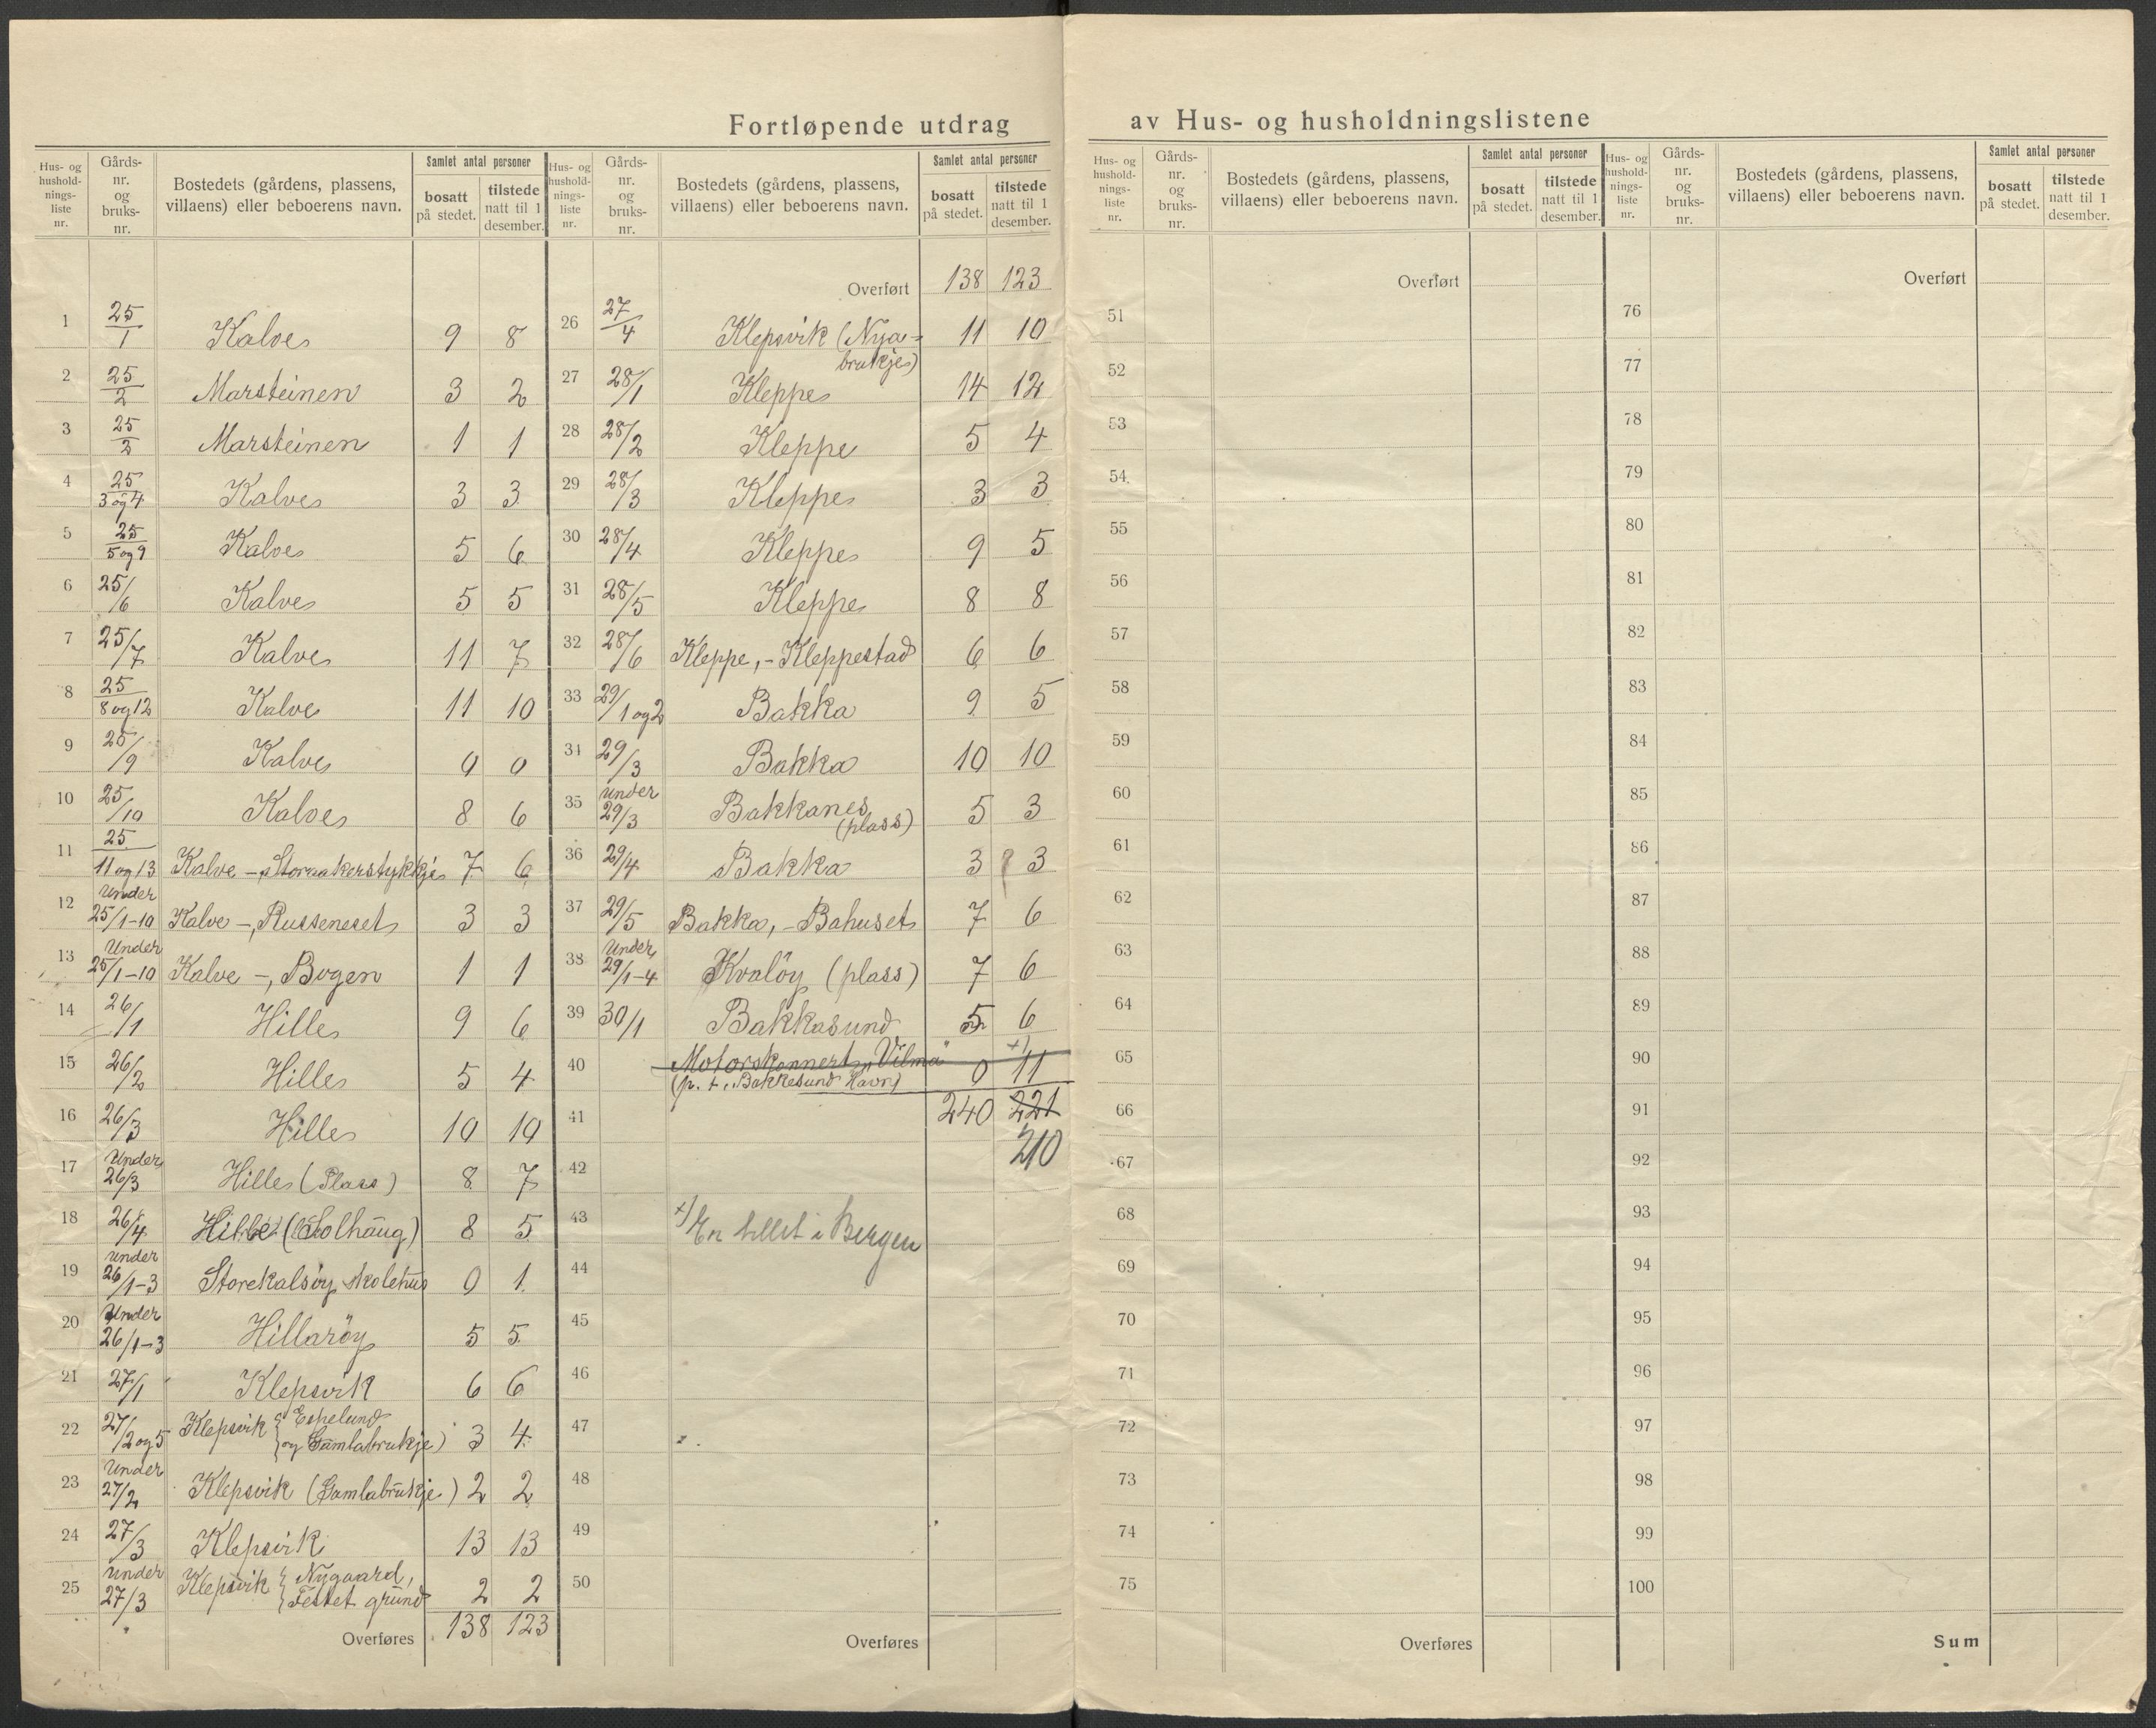 Fortløpende utdrag av Hus- og husholdningslistene
Hus- og husholdnings-liste nr. Gårds-nr. og bruks-nr. Bostedets (gårdens, plassens, villaens) eller beboerens navn. Samlet antal personer bosatt på stedet. tilstede natt til 1 desember.
1 25/1 Kalve 9 8
2 25/2 Marsteinen 3 2
3 25/2 Marsteinen 1 1
4 25/3 og 4 Kalve 3 3
5 25/5 og 9 Kalve 5 6
6 25/6 Kalve 5 5
7 25/7 Kalve 11 7
8 25/8 og 12 Kalve 11 10
9 25/9 Kalve 0 0
10 25/10 Kalve 8 6
11 25/11 og 13 Kalve - Storaakerstykkje 7 6
12 Under 25/1-10 Kalve -, Russeneset 3 3
13 Under 25/1-10 Kalve -, Bogen 1 1
14 26/1 Hille 9 6
15 26/2 Hille 5 4
16 26/3 Hille 10 10
17 Under 26/3 Hille (Plass) 8 7
18 26/4 Hille (Solhaug) 8 5
19 Under 26/1-3 Storekalsöy skolehus 0 1
20 Under 26/1-3 Hillaröy 5 5
21 27/1 Klepsvik 6 6
22 27/2 og 5 Klepsvik { Espelund
og Gamlabrukje) 3 4
23 Under 27/2 Klepsvik (Gamlabrukje) 2 2
24 27/3 Klepsvik 13 13
25 Under 27/3 Klepsvik { Nygaard,
Festet grund 2 2
Overføres 138 123
Hus- og husholdnings-liste nr. Gårds-nr. og bruks-nr. Bostedets (gårdens, plassens, villaens) eller beboerens navn. Samlet antal personer bosatt på stedet. tilstede natt til 1 desember.
Overført 138 123
26 27/4 Klepsvik (Nya-
brukje) 11 10
27 28/1 Kleppe 14 12
28 28/2 Kleppe 5 4
29 28/3 Kleppe 3 3
30 28/4 Kleppe 9 5
31 28/5 Kleppe 8 8
32 28/6 Kleppe, - Kleppestad 6 6
33 29/1 og 2 Bakka 9 5
34 29/3 Bakka 10 10
35 Under 29/3 Bakkanes
(plass) 5 3
36 29/4 Bakka 3 3
37 29/5 Bakka, - Bahuset 7 6
38 Under 29/1-4 Kvalöy (plass) 7 6
39 30/1 Bakkasund 5 6
40 Motorskonnert „Vilma" 0 11 +)
(p. t. i Bakkesund Havn)
41 240 221
210
42
43 +) Er tellet i Bergen
44
45
46
47
48
49
50
Overføres
Hus- og husholdnings-liste nr. Gårds-nr. og bruks-nr. Bostedets (gårdens, plassens, villaens) eller beboerens navn. Samlet antal personer bosatt på stedet. tilstede natt til 1 desember.
Overført
51
52
53
54
55
56
57
58
59
60
61
62
63
64
65
66
67
68
69
70
71
72
73
74
75
Overføres
Hus- og husholdnings-liste nr. Gårds-nr. og bruks-nr. Bostedets (gårdens, plassens, villaens) eller beboerens navn. Samlet antal personer bosatt på stedet. tilstede natt til 1 desember.
Overført
76
77
78
79
80
81
82
83
84
85
86
87
88
89
90
91
92
93
94
95
96
97
98
99
100
Sum